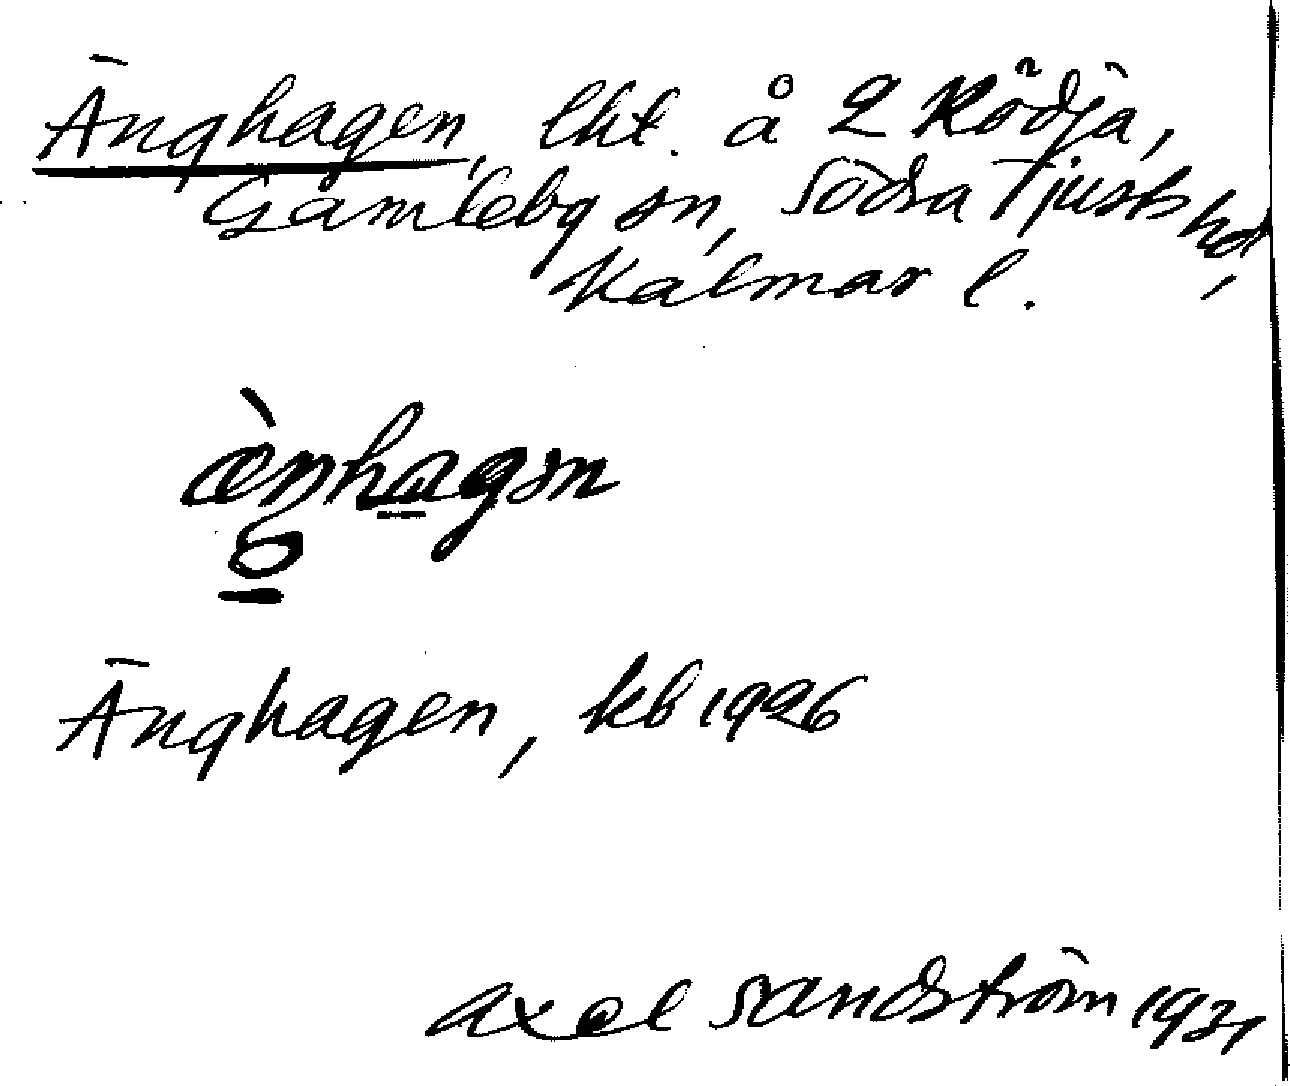 Änghagen, lht. å 2 Rödja,
Gamleby sn, Södra Tjusts hd,
Kalmar l.
æ̀ŋhagən
Änghagen, kb 1926
Axel Sandström 1931